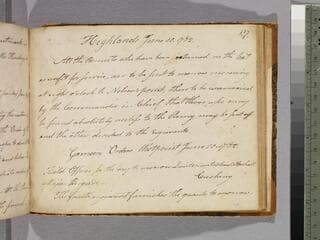 Highlands June 10. 1782.
All the Recruits who have been returned in the last
as unfit for service, are to be sent to morrow morning
at eight o'clock to Nelson's point, there to be examined
by the Commander in Chief that those who may
be found absolutely useless to the Army may be put off
and the others divided to the regiments
Garrison Orders Westpoint June 10. 1782
Field Officer for the day to morrow Lieutenant Colonel
Major Brigade Cushing
The regiment furnishes the guards to morrow